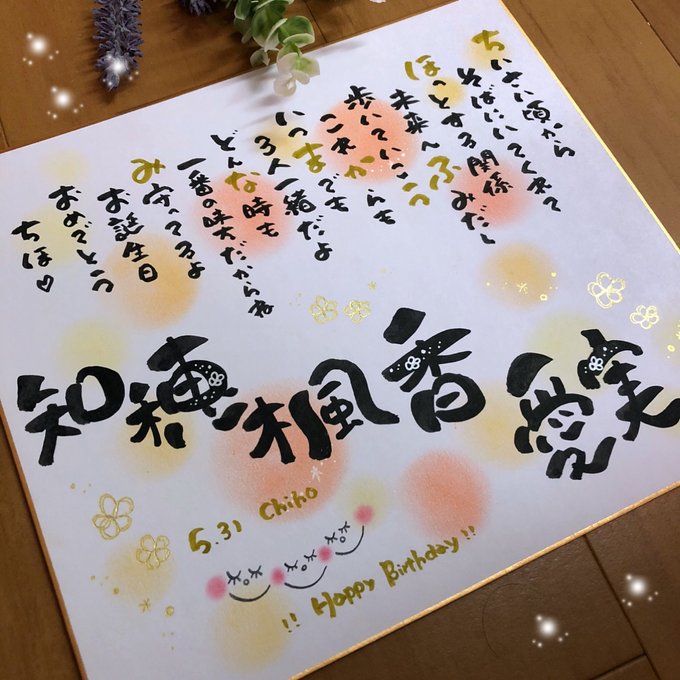 ちいさい頃から
そばにいてくれて
ほっとする関係
未来へふみだし
歩いていこう
これからも
いつまでも
3人一緒だよ
どんな時も
一番の味方だからね
み守ってるよ
お誕生日
おめでとう
ちほ♡
知穂 楓香 愛実
5.31 Chiho
!! Happy Birthday !!